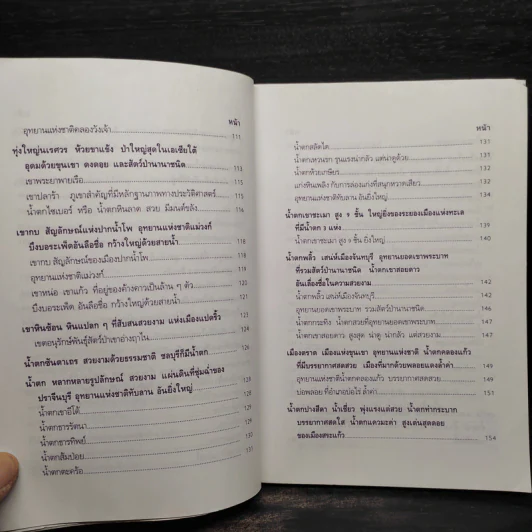 หน้า
อุทยานแห่งชาติคลองวังเจ้า 111
ทุ่งใหญ่นเรศวร ห้วยขาแข้ง ป่าใหญ่สุดในเอเซียใต้
อุดมด้วยขุนเขา ดงดอย และสัตว์ป่านานาชนิด 113
เขาพระยาพายเรือ 115
เขาปลาร้า ภูเขาสำคัญที่มีหลักฐานภาพทางประวัติศาสตร์ 115
น้ำตกไซเบอร์ หรือ น้ำตกหินลาด สวย มีมนต์ขลัง 116
เขากบ สัญลักษณ์แห่งปากน้ำโพ อุทยานแห่งชาติแม่วงก์
บึงบอระเพ็ดอันลือชื่อ กว้างใหญ่ด้วยสายน้ำ 118
เขากบ สัญลักษณ์ของเมืองปากน้ำโพ 118
อุทยานแห่งชาติแม่วงก์
เขาหน่อ เขาแก้ว ที่อยู่ของค้างคาวเป็นล้าน ๆ ตัว
บึงบอระเพ็ด อันลือชื่อ กว้างใหญ่ด้วยสายน้ำ
เขาหินซ้อน หินแปลก ๆ ที่สับสนสวยงาม แห่งเมืองแปดริ้ว
เขตอนุรักษ์พันธุ์สัตว์ป่าเขาอ่างฤาไน
น้ำตกชันตาเถร สวยงามด้วยธรรมชาติ ชลบุรีก็มีน้ำตก
น้ำตก หลากหลายรูปลักษณ์ สวยงาม แผ่นดินที่ชุ่มฉ่ำของ
ปราจีนบุรี อุทยานแห่งชาติทับลาน อันยิ่งใหญ่
น้ำตกเขาอีโต้
น้ำตกธารรัตนา
น้ำตกธารทิพย์
น้ำตกส้มป่อย
น้ำตกตะคร้อ 131
หน้า
น้ำตกสลัดได 131
น้ำตกเหวนรก รุนแรงน่ากลัว แต่น่าดูด้วย 132
น้ำตกห้วยเกษียร 133
แก่งหินเพลิง กับการล่องแก่งที่สนุกหวาดเสียว 133
อุทยานแห่งชาติทับลาน อันยิ่งใหญ่ 134
น้ำตกเขาชะเมา สูง 9 ชั้น ใหญ่ยิ่งของระยองเมืองแห่งทะเล
ที่มีน้ำตก 3 แห่ง 139
น้ำตกเขาชะเมา สูง 9 ชั้น ยิ่งใหญ่ 140
น้ำตกพลิ้ว เสน่ห์เมืองจันทบุรี อุทยานยอดเขาพระบาท
ที่รวมสัตว์ป่านานาชนิด น้ำตกเขาสอยดาว
อันเลื่องชื่อในความสวยงาม 142
น้ำตกพลิ้ว เสน่ห์เมืองจันทบุรี 142
อุทยานยอดเขาพระบาท รวมสัตว์ป่านานาชนิด 146
น้ำตกกระทิง น้ำตกสวยที่อุทยานยอดเขาพระบาท 147
น้ำตกเขาสอยดาว สูงสุด น่าดู น่ากลัว แต่สวยงาม 147
เมืองตราด เมืองแห่งขุนเขา อุทยานแห่งชาติ น้ำตกคลองแก้ว
ที่มีบรรยากาศสดสวย เมืองที่มากด้วยพลอยแดงล้ำค่า 149
อุทยานแห่งชาติน้ำตกคลองแก้ว บรรยากาศสดสวย 149
บ่อพลอย ที่อำเภอบ่อไร่ ล้ำค่า 151
น้ำตกปางสีดา น้ำเชี่ยว พุ่งแรงแต่สวย น้ำตกท่ากระบาก
บรรยากาศสดใส น้ำตกแควมะค่า สูงเด่นสุดดอย
ของเมืองสระแก้ว 154